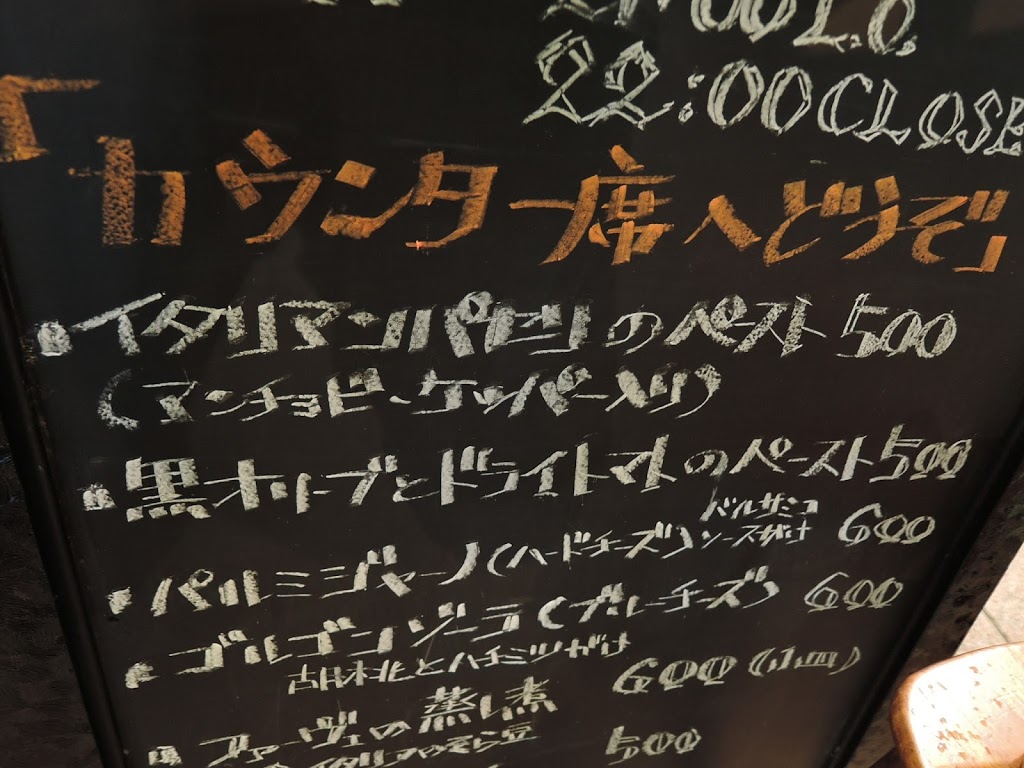 21:00 L.O.
22:00 CLOSE
「カウンター席へどうぞ」
イタリアンパセリのペースト 500
(アンチョビ、ケッパー入り)
黒オリーブとドライトマトのペースト 500
パルミジャーノ(ハードチーズ) バルサミコソースがけ 600
ゴルゴンゾーラ(ブルーチーズ) 600
胡桃とハチミツがけ 600(小皿)
ファーヴェの蒸し煮
イタリアのそら豆 500